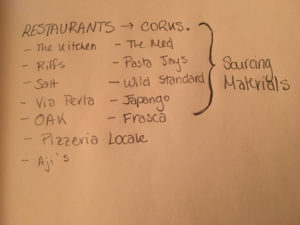 RESTAURANTS → CORKS.
- The Kitchen - The Med
- Riffs - Pasta Jays
- Salt - Wild Standard
- Via Perla - Japango
- OAK - Frasca
- Pizzeria Locale
- Aji's
Sourcing
Materials